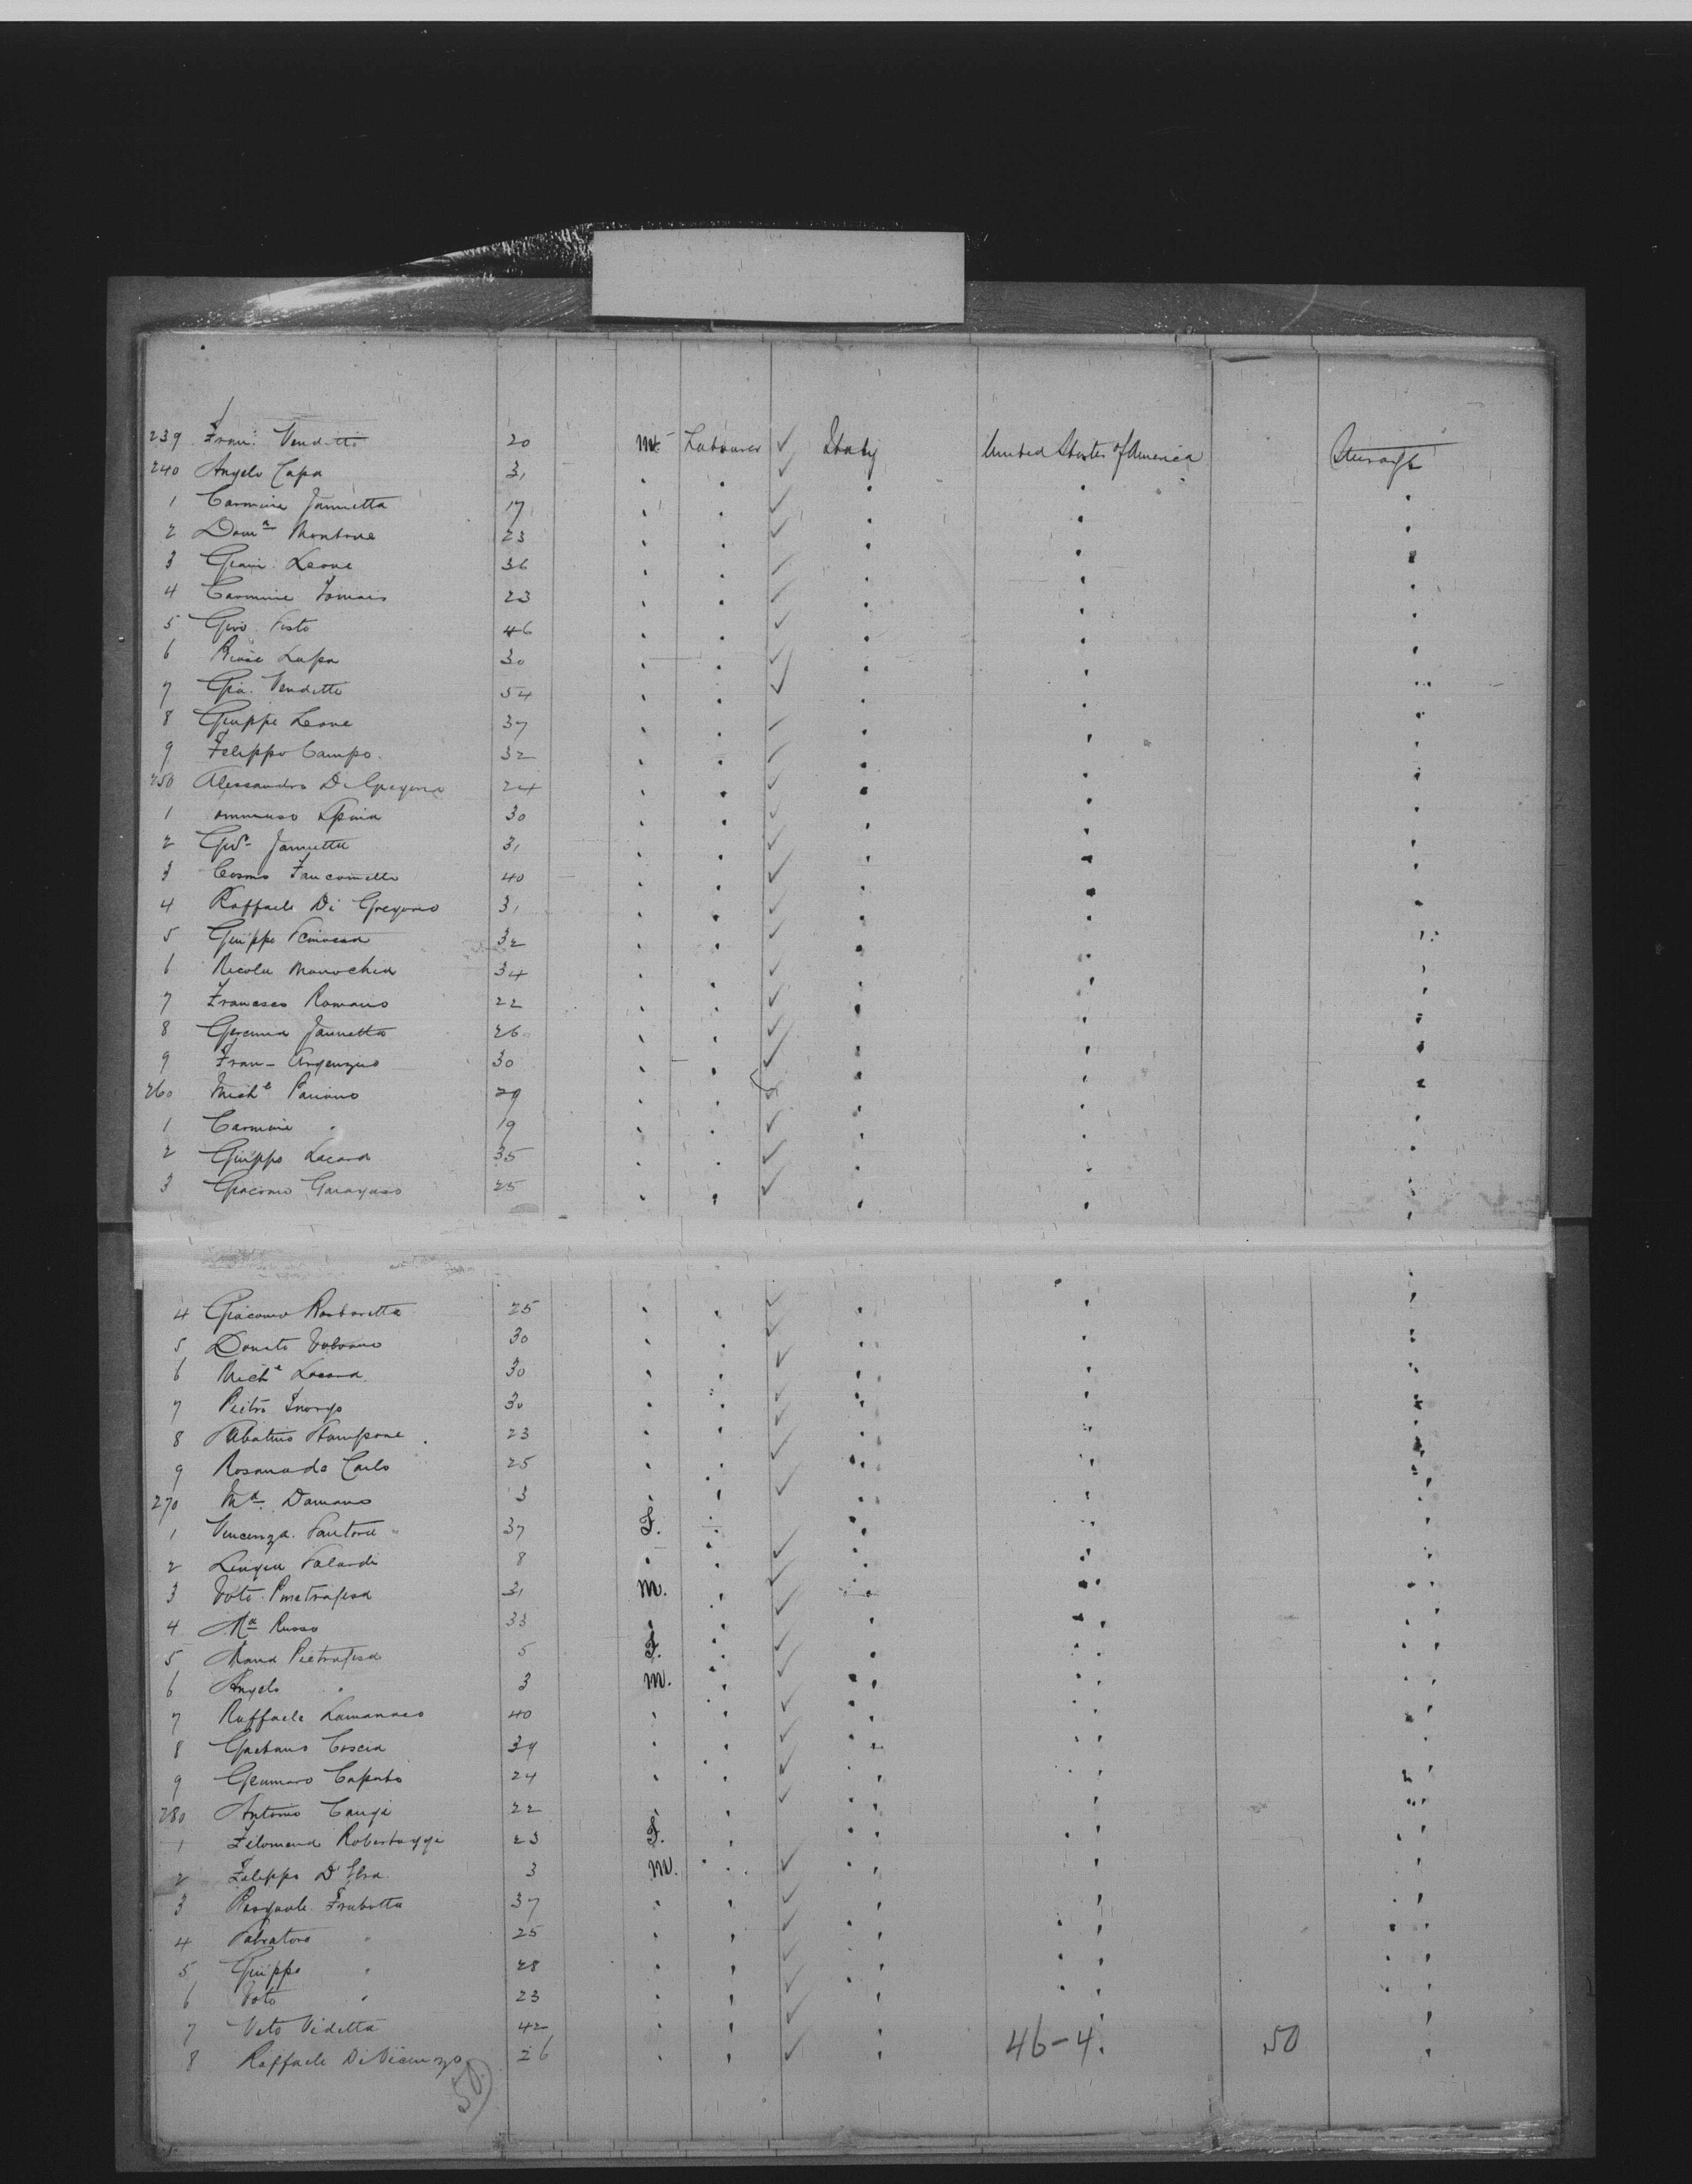 239 Fran. Venditti 20 M. Labourer ✓ Italy United States of America Steerage
240 Angelo Capa 31 ✓
1 Carmine Jannetta 17 ✓
2 Domᵃ Montone 23 ✓
3 Leone 36 ✓
4 Carmine 23 ✓
5 Giov. Testo 46 ✓
6 Lupa 30 ✓
7 Gia. Venditto 54 ✓
8 Giuppe Leone 37 ✓
9 Felippo Campo. 32 ✓
250 Alessandro Di Gregorio 24 ✓
1 ommaso Spina 30 ✓
2 Jannetta 31 ✓
3 Cosmo 40 ✓
4 Raffaele Di Gregorio 31 ✓
5 Giuppe 32 ✓
6 Nicola Monochia 34 ✓
7 Francesco Romano 22 ✓
8 Jannetta 26 ✓
9 Fran- Argenzio 30 ✓
260 Michᵉ Pariano 29
1 Carmine " 19 ✓
2 Giuppe Lacara 35 ✓
3 Giacomo Garaguso 25 ✓
4 Giacomo Barbaretta 25 ✓
5 Donato 30 ✓
6 Michᵉ Lacara 30 ✓
7 Pietro 30 ✓
8 Sabatino Stampone 23 ✓
9 Rosana de Carlo 25 ✓
270 Mᵃ. Damano 3 ✓
1 Vincenza 37 F.
2 Falardi 8 ✓
3 Vito 31 M. ✓
4 Mᵃ Russo 33 ✓
5 Maria Pietrafesa 5 F. ✓
6 Angelo " 3 M. ✓
7 Raffaele Lamanaco 40 ✓
8 Gaetano Coscia 39 ✓
9 Gennaro Caputo 24 ✓
280 Antonio 22 ✓
1 Filomena 23 F.
2 Filippo D'Elia 3 M. ✓
3 Pasquale Frabotta 37 ✓
4 Salvatore " 25 ✓
5 Giuppe " 28 ✓
6 Vito " 23 ✓
7 Vito Videtta 42 ✓
8 Raffaele Di Vicenzo 26 ✓ 46-4. 50
50